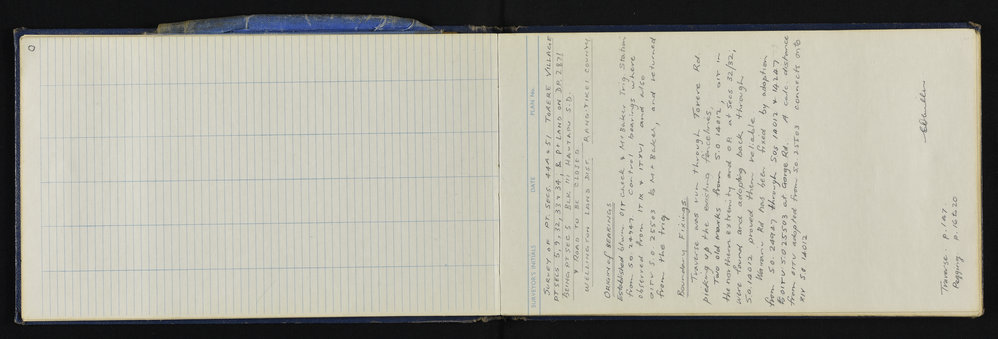 0
SURVEYOR'S INITIALS DATE PLAN No.
SURVEY OF PT. SECS 44A & 51 TORERE VILLAGE
PT SECS 5, 9, 32, 33 & 34, & PT LAND ON D.P. 2871
BEING PT SEC 5 BLK III HAUTAPU S.D.
& ROAD TO BE CLOSED
WELLINGTON LAND DIST. RANGITIKEI COUNTY
ORIGIN of BEARINGS
Established btwn OIT Check & Mt Baker Trig Station
from S.O. 24947. Control bearings where
observed from IT IX & IT XVI and also
OIT V S.O. 25503 to Mt Baker, and returned
from the trig
Boundary Fixings
Traverse was run through Torere Rd.
picking up the existing fencelines.
Two old marks from S.O 14012, OIT in
the northern extremity and OP at Secs 32/52,
were found and adopting back through
S.O. 14012 proved them reliable
Rd has been fixed by adoption
from S.O. 24947 through SOs 14012 & 14247
to OIT V SO 25503 at Gorge Rd. A calc distance
from OIT V adopted from S.O 25503 connects onto
XIV S.O 14012
Traverse. p. 1 to 7.
Pegging p. 16 to 20